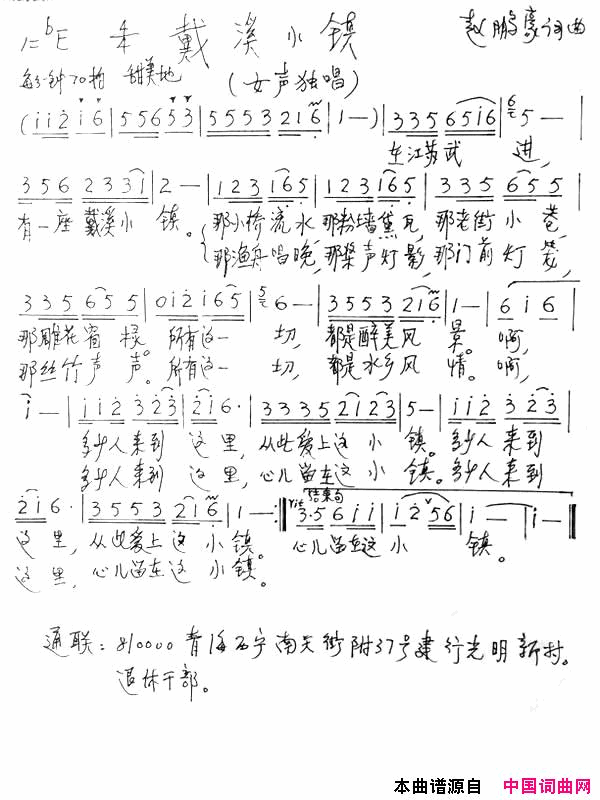 1=bE 2/4 戴溪小镇 赵鹏豪词曲
每分钟70拍 甜美地 (女声独唱)
(i i 2 i 6 | 5 5 6 5 3 | 5 5 5 3 2 1 6 | 1 — ) | 3 3 5 6 5 i 6 | 5 — |
在江苏武 进,
3 5 6 2 3 3 1 | 2 — | 1 2 3 1 6 5 | 1 2 3 1 6 5 | 3 3 5 6 5 5 |
有一座戴溪小镇。 那小桥流水,那粉墙黛瓦,那老街小巷,
那渔舟唱晚,那桨声灯影,那门前灯笼,
3 3 5 6 5 5 | 0 i 2 i 6 5 | 6 — | 3 5 5 3 2 1 6 | 1 — | 6 i 6 |
那雕花窗棂。所有这一切,都是醉美风景。啊,
那丝竹声声。所有这一切,都是水乡风情。啊,
i — | i i 2 3 2 3 | 2 i 6 · | 3 3 3 5 2 1 2 3 | 5 — | i i 2 3 2 3 |
多少人来到这里,从此爱上这小镇。多少人来到
多少人来到这里,心儿留在这小镇。多少人来到
2 i 6 · | 3 5 5 3 2 1 6 | 1 — :‖ rit 结束句 3 · 5 6 i i | i 2 5 6 | i — | i — ‖
这里,从此爱上这小镇。 心儿留在这小镇。
这里,心儿留在这小镇。
通联:810000青海西宁南大街附37号建行光明新村。
退休干部。
本曲谱源自 中国词曲网